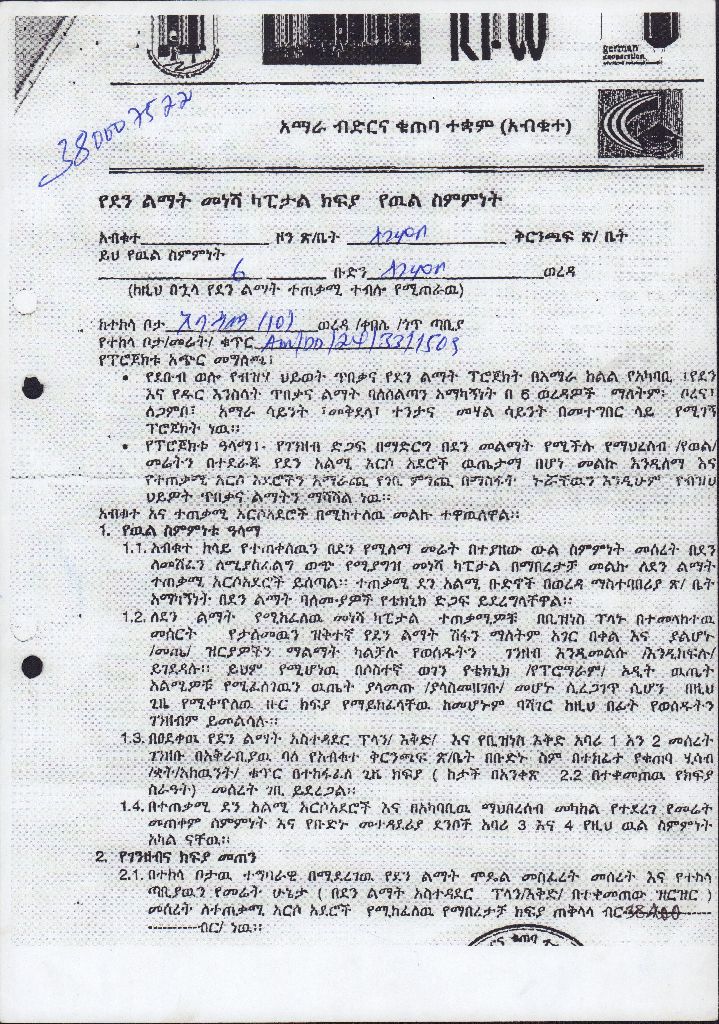 KFW
german
cooperation
380007522
አማራ ብድርና ቁጠባ ተቋም (አብቁተ)
የደን ልማት መነሻ ካፒታል ክፍያ የዉል ስምምነት
አብቁተ ዞን ጽ/ቤት ቅርንጫፍ ጽ/ ቤት
ይህ የዉል ስምምነት
6 ቡድን ወረዳ
(ከዚህ በኋላ የደን ልማት ተጠቃሚ ተብሎ የሚጠራዉ)
ከተከላ ቦታ /01 ወረዳ /ቀበሌ /ጎጥ ጣቢያ
የተከላ ቦታ/መሬት/ ቁጥር Am/DD/24/33/1509
የፕሮጀክቱ አጭር መግለጫ፤
• የደቡብ ወሎ የብዝሃ ህይወት ጥበቃና የደን ልማት ፕሮጀክት በአማራ ክልል የአካባቢ ፤የደን
እና የዱር እንስሳት ጥበቃና ልማት ባለስልጣን አማካኝነት በ 6 ወረዳዎች ማለትም፡ ቦረና፤
ለጋምቦ፤ አማራ ሳይንት ፤መቅደላ፤ ተንታና መሃል ሳይንት በመተግበር ላይ የሚገኝ
ፕሮጀክት ነዉ።
• የፕሮጀክቱ ዓላማ፤- የገንዘብ ድጋፍ በማድርግ በደን መልማት የሚችሉ የማህረሰብ /የወል/
መሬትን በተደራጁ የደን አልሚ አርሶ አደሮች ዉጤታማ በሆነ መልኩ እንዲለማ እና
የተጠቃሚ አርሶ አደሮችን አማራጪ የገቢ ምንጪ በማስፋት ኑሯቸዉን እንዲሁም የብዝሃ
ህይዎት ጥበቃና ልማትን ማሻሻል ነዉ።
አብቁተ እና ተጠቃሚ አርሶአደሮች በሚከተለዉ መልኩ ተዋዉለዋል።
1. የዉል ስምምነቱ ዓላማ
1.1. አብቁተ ከላይ የተጠቀሰዉን በደን የሚለማ መሬት በተያዘው ውል ስምምነት መሰረት በደን
ለመሸፈን ለሚያስፈልግ ወጭ የሚያግዝ መነሻ ካፒታል በማበረታቻ መልኩ ለደን ልማት
ተጠቃሚ አርሶአደሮች ይሰጣል። ተጠቃሚ ደን አልሚ ቡድኖች በወረዳ ማስተባበሪያ ጽ/ ቤት
አማካኝነት በደን ልማት ባለሙያዎች የቴክኒክ ድጋፍ ይደረግላቸዋል።
1.2. ለደን ልማት የሚከፈለዉ መነሻ ካፒታል ተጠቃሚዎቹ በቢዝነስ ፕላኑ በተመለከተዉ
መሰርት የታለመዉን ዝቅተኛ የደን ልማት ሽፋን ማለትም አገር በቀል እና ያልሆኑ
/መጤ/ ዝርያዎችን ማልማት ካልቻሉ የወሰዱትን ገንዘብ እንዲመልሱ /እንዲከፍሉ/
ይገደዳሉ። ይህም የሚሆነዉ በሶስተኛ ወገን የቴክኒክ /የፕሮግራም/ ኦዲት ዉጤት
አልሚዎቹ የሚፈለገዉን ዉጤት ያላመጡ /ያላስመዘገቡ/ መሆኑ ሲረጋገጥ ሲሆን በዚህ
ጊዜ የሚቀጥለዉ ዙር ክፍያ የማይከፈላቸዉ ከመሆኑም ባሻገር ከዚህ በፊት የወሰዱትን
ገንዘብም ይመልሳሉ።
1.3. በፀደቀዉ የደን ልማት አስተዳደር ፕላን/ እቅድ/ እና የቢዝነስ እቅድ አባሪ 1 እን 2 መሰረት
ገንዘቡ በአቅራቢያዉ ባለ የአብቁተ ቅርንጫፍ ጽ/ቤት በቡድኑ ስም በተከፈተ የቁጠባ ሂሳብ
/ቋት/አከዉንት/ ቁጥር በተከፋፈለ ጊዜ ክፍያ ( ከታች በአንቀጽ 2.2 በተቀመጠዉ የክፍያ
ስራዓት) መሰረት ገቢ ይደረጋል።
1.4. በተጠቃሚ ደን አልሚ አርሶአደሮች እና በአካባቢዉ ማህበረሰብ መካከል የተደረገ የመሬት
መጠቀም ስምምነት እና የቡድኑ መተዳደሪያ ደንቦች አባሪ 3 እና 4 የዚህ ዉል ስምምነት
አካል ናቸዉ።
2. የገንዘብና ክፍያ መጠን
2.1. በተከላ ቦታዉ ተግባራዊ በሚደረገዉ የደን ልማት ሞዴል መስፈረት መሰረት እና የተከላ
ጣቢያዉን የመሬት ሁኔታ ( በደን ልማት አስተዳደር ፕላን/እቅድ/ በተቀመጠው ዝርዝር )
መሰረት ለተጠቃሚ አርሶ አደሮች የሚከፈለዉ የማበረታቻ ክፍያ ጠቅላላ ብር
-----------ብር/ ነዉ።
ና ቁጠባ